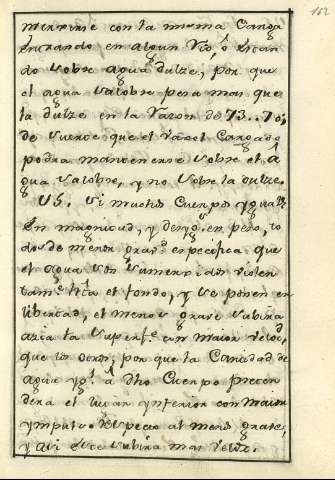 152
mergirse con la misma Carga
entrando en algun Rio, ó estan
do sobre agua dulze, por que
el agua salobre pesa mas que
la dulze en la razon de 73..70;
de suerte que el Vagel Cargado
podra mantenerse sobre el A
gua salobre, y no sobre la dulze.
Us. Si muchos Cuerpos yguals
En magnitud, y desygs en peso, to
dos de menor gravd especifica que
el agua son sumergidos violen
tamte hta el fondo, y se ponen en
libertad, el menos grave subirá
azia la superfe con maior velocd
que los otros, por que la Cantidad de
agua ygl á dho Cuerpo preten
dera el lugar ynferior con maior
ympulso respecto al menos grave,
y assi este subirá mas veloz.